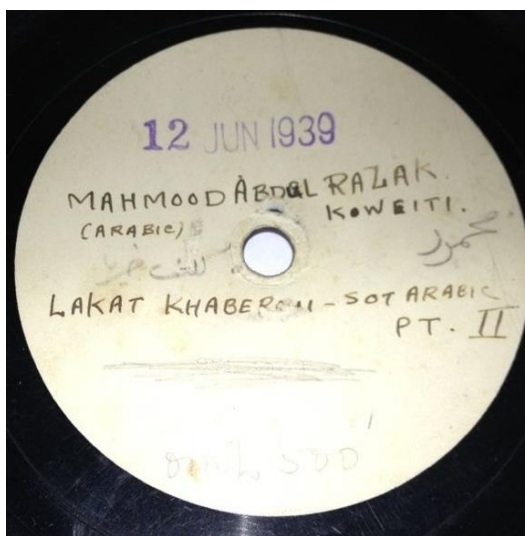 12 JUN 1939
MAHMOOD ABDUL RAZAK.
(ARABIC) KOWEITI.
محمود
LAKAT KHABERONI - SOT ARABIC
PT. II